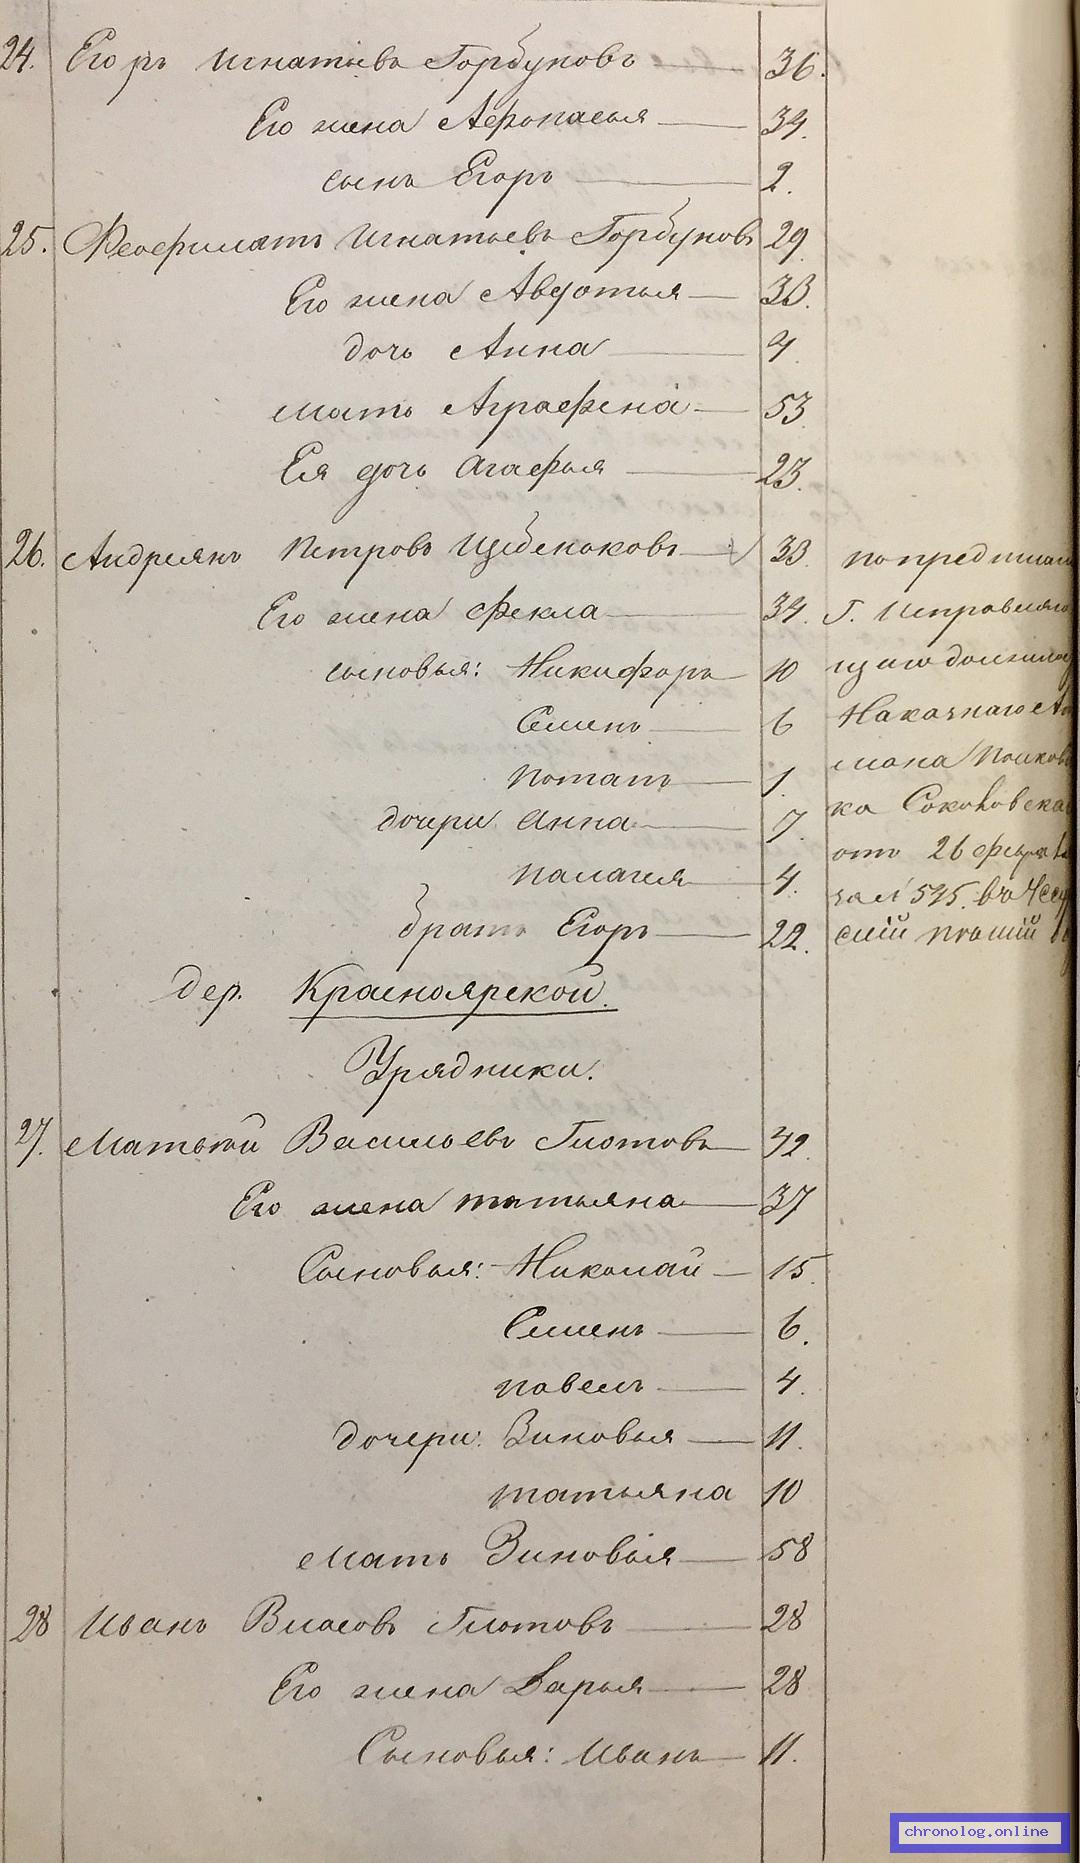 24. Егоръ Игнатьевъ Горбуновъ 36.
Его жена Афонасья 34.
сынъ Егоръ 2.
25. Феофилатъ Игнатьевъ Горбуновъ 29
Его жена Авдотья 33.
дочь Анна 4
мать Аграфена 53
Ея дочь Агафья 23.
26. Андреянъ Петровъ 33.
Его жена Фекла 34.
сыновья: Никифоръ 10
Семенъ 6
Потапъ 1.
дочери Анна 7.
Палагея 4.
братъ Егоръ 22.
по предписан
Г. Исправляю
щаго должнос
Наказнаго Ата
мана Полков
ка
отъ 26 февра
за № 515. въ
скій
дер. Красноярской.
Урядники.
27. Матвѣй Васильевъ Глотовъ 42.
Его жена татьяна 37
Сыновья: Николай 15
Семенъ 6.
павелъ 4.
дочери: Зиновья 11.
татьяна 10
мать Зиновья 58
28 Иванъ Власовъ Глотовъ 28
Его жена Дарья 28
Сыновья: Иванъ 11.
chronolog.online